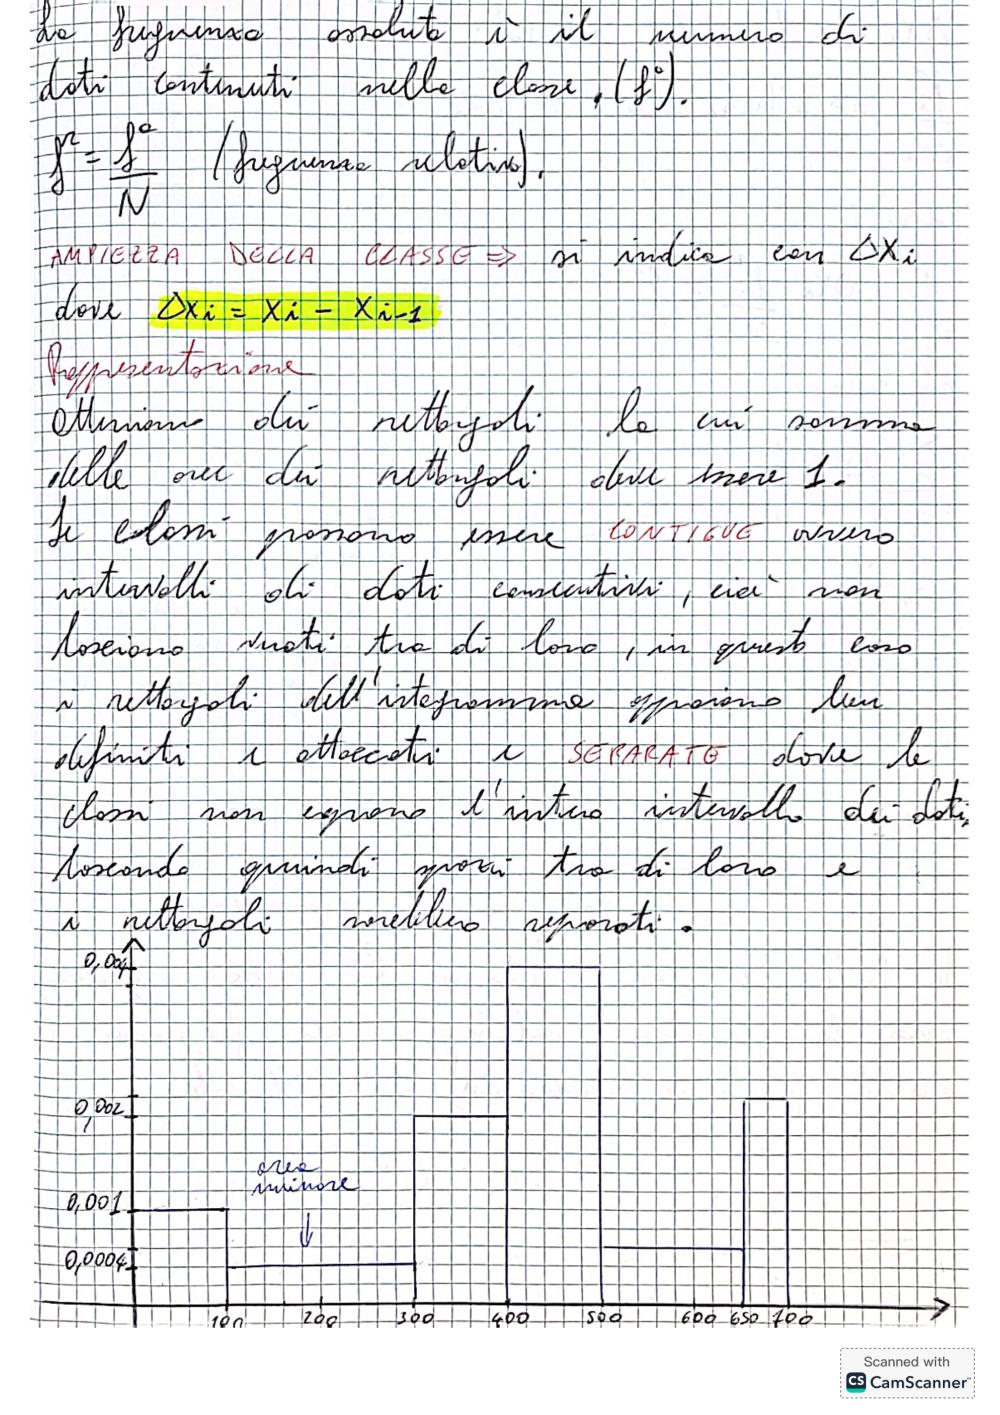 La frequenza assoluta è il numero di
dati contenuti nella classe, (fᵃ).
fʳ = fᵃ/N (frequenza relativa).
AMPIEZZA DELLA CLASSE ⇒ si indica con ΔXi
dove ΔXi = Xi - Xi-1
Rappresentazione
Otteniamo dei rettangoli la cui somma
delle aree dei rettangoli deve essere 1.
Le classi possono essere CONTIGUE ovvero
intervalli di dati consecutivi, cioè non
lasciano vuoti tra di loro, in questo caso
i rettangoli dell'istogramma appaiono ben
definiti e attaccati e SEPARATE dove le
classi non coprono l'intero intervallo dei dati,
lasciando quindi spazi tra di loro e
i rettangoli sarebbero separati.
0,004
0,002
area
minore
0,001
0,0004
100 200 300 400 500 600 650 700
Scanned with
CS CamScanner